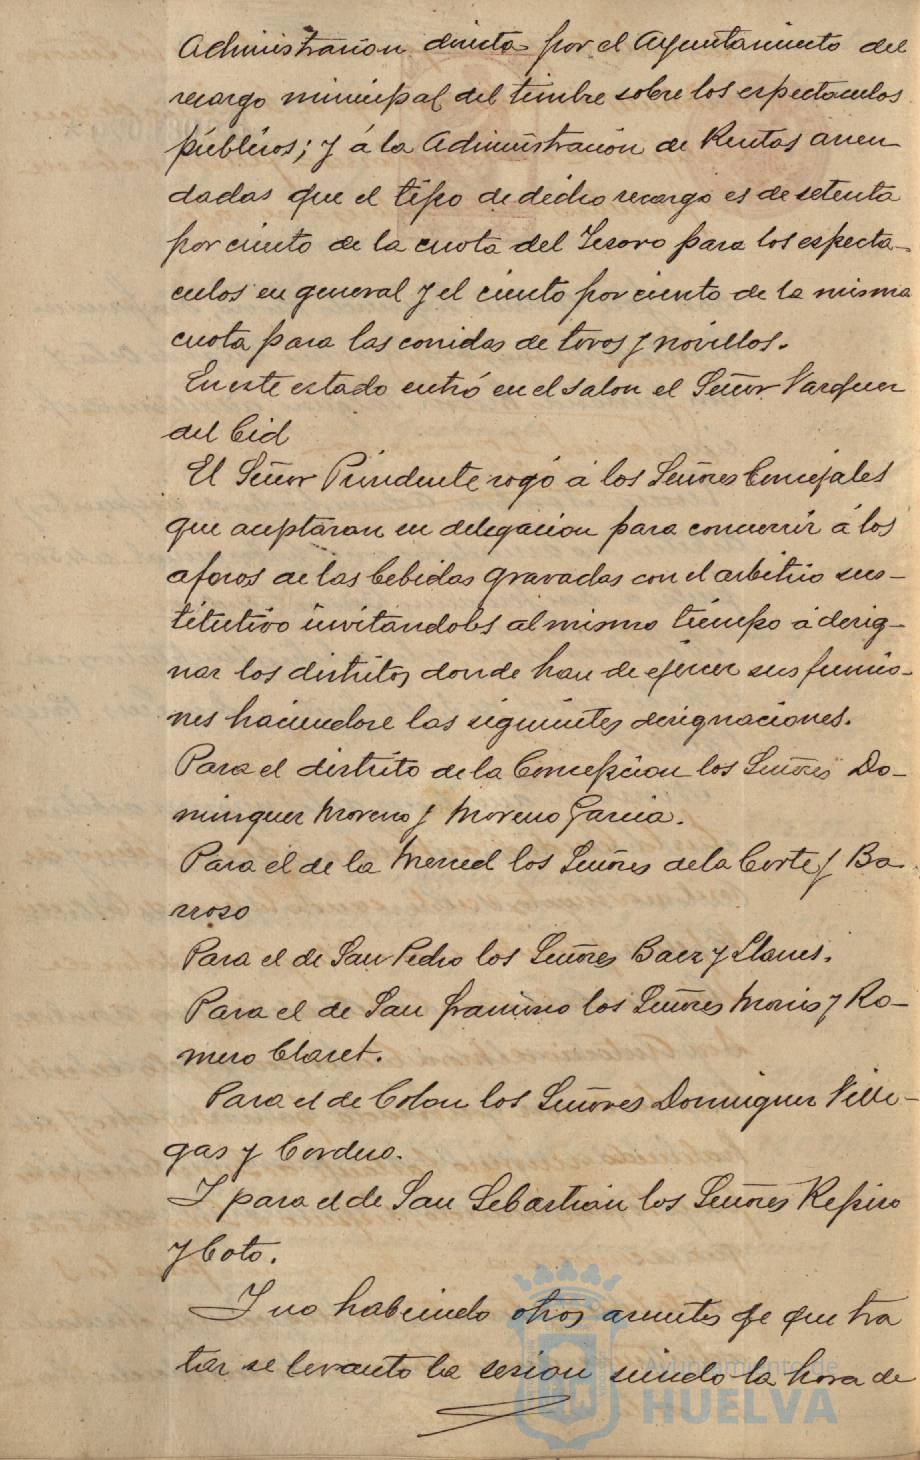 Administracion directa por el Ayuntamiento del
recargo municipal del timbre sobre los espectaculos
públicos; y á la Administracion de Rentas arren-
dadas que el tipo de dicho recargo es de setenta
por ciento de la cuota del Tesoro para los especta-
culos en general y el ciento por ciento de la misma
cuota para las corridas de toros y novillos.
En este estado entró en el salon el Señor Vazquez
del Cid
El Señor Presidente rogó á los Señores Concejales
que aceptaran su delegacion para concurrir á los
aforos de las bebidas gravadas con el arbitrio sus-
titutivo invitandoles al mismo tiempo á desig-
nar los distritos donde han de ejercer sus funcio-
nes haciendose las siguientes designaciones.
Para el distrito de la Concepcion los Señores Do-
minguez Moreno y Moreno Garcia.
Para el de la Merced los Señores de la Corte y Ba-
rroso
Para el de San Pedro los Señores Baez y Llanes.
Para el de San Francisco los Señores Monis y Ro-
mero Claret.
Para el de Colon los Señores Dominguez Ville-
gas y Cordero.
Y para el de San Sebastian los Señores Repiso
y Coto.
Y no habiendo otros asuntos de que tra
tar se levanto la sesion siendo la hora de
Ayuntamiento de
HUELVA